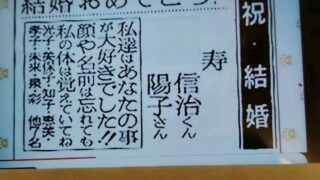 結婚おめでとう!
祝 結婚
寿
信治くん
陽子さん
私達はあなたの事
が大好きでした!!
顔や名前は忘れても
私の体は覚えていてね
光子・美保子・知子・恵美・
孝子・未来・泉・彩 他7名